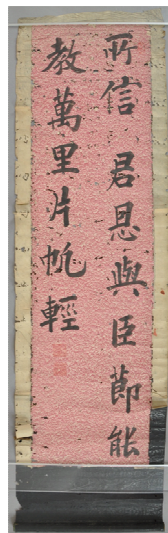 所信君恩與臣節能
教萬里片帆輕